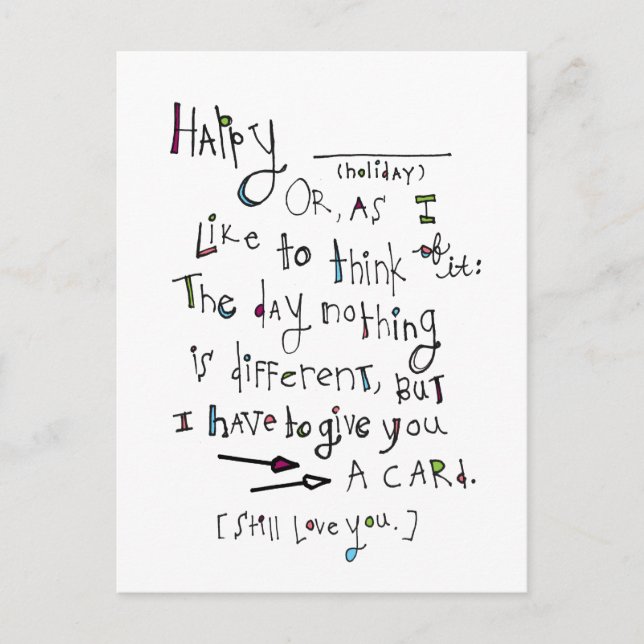 Happy ________
(holiday)
OR, AS I
Like to think of it:
The day nothing
is different, BUT
I have to give you
A CARd.
[Still Love you.]